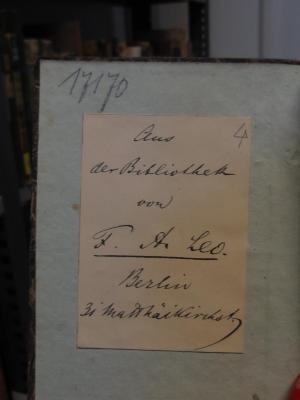 17170
4
Aus
der Bibliothek
von
F. A. Leo.
Berlin
31 Matthäikirchst.